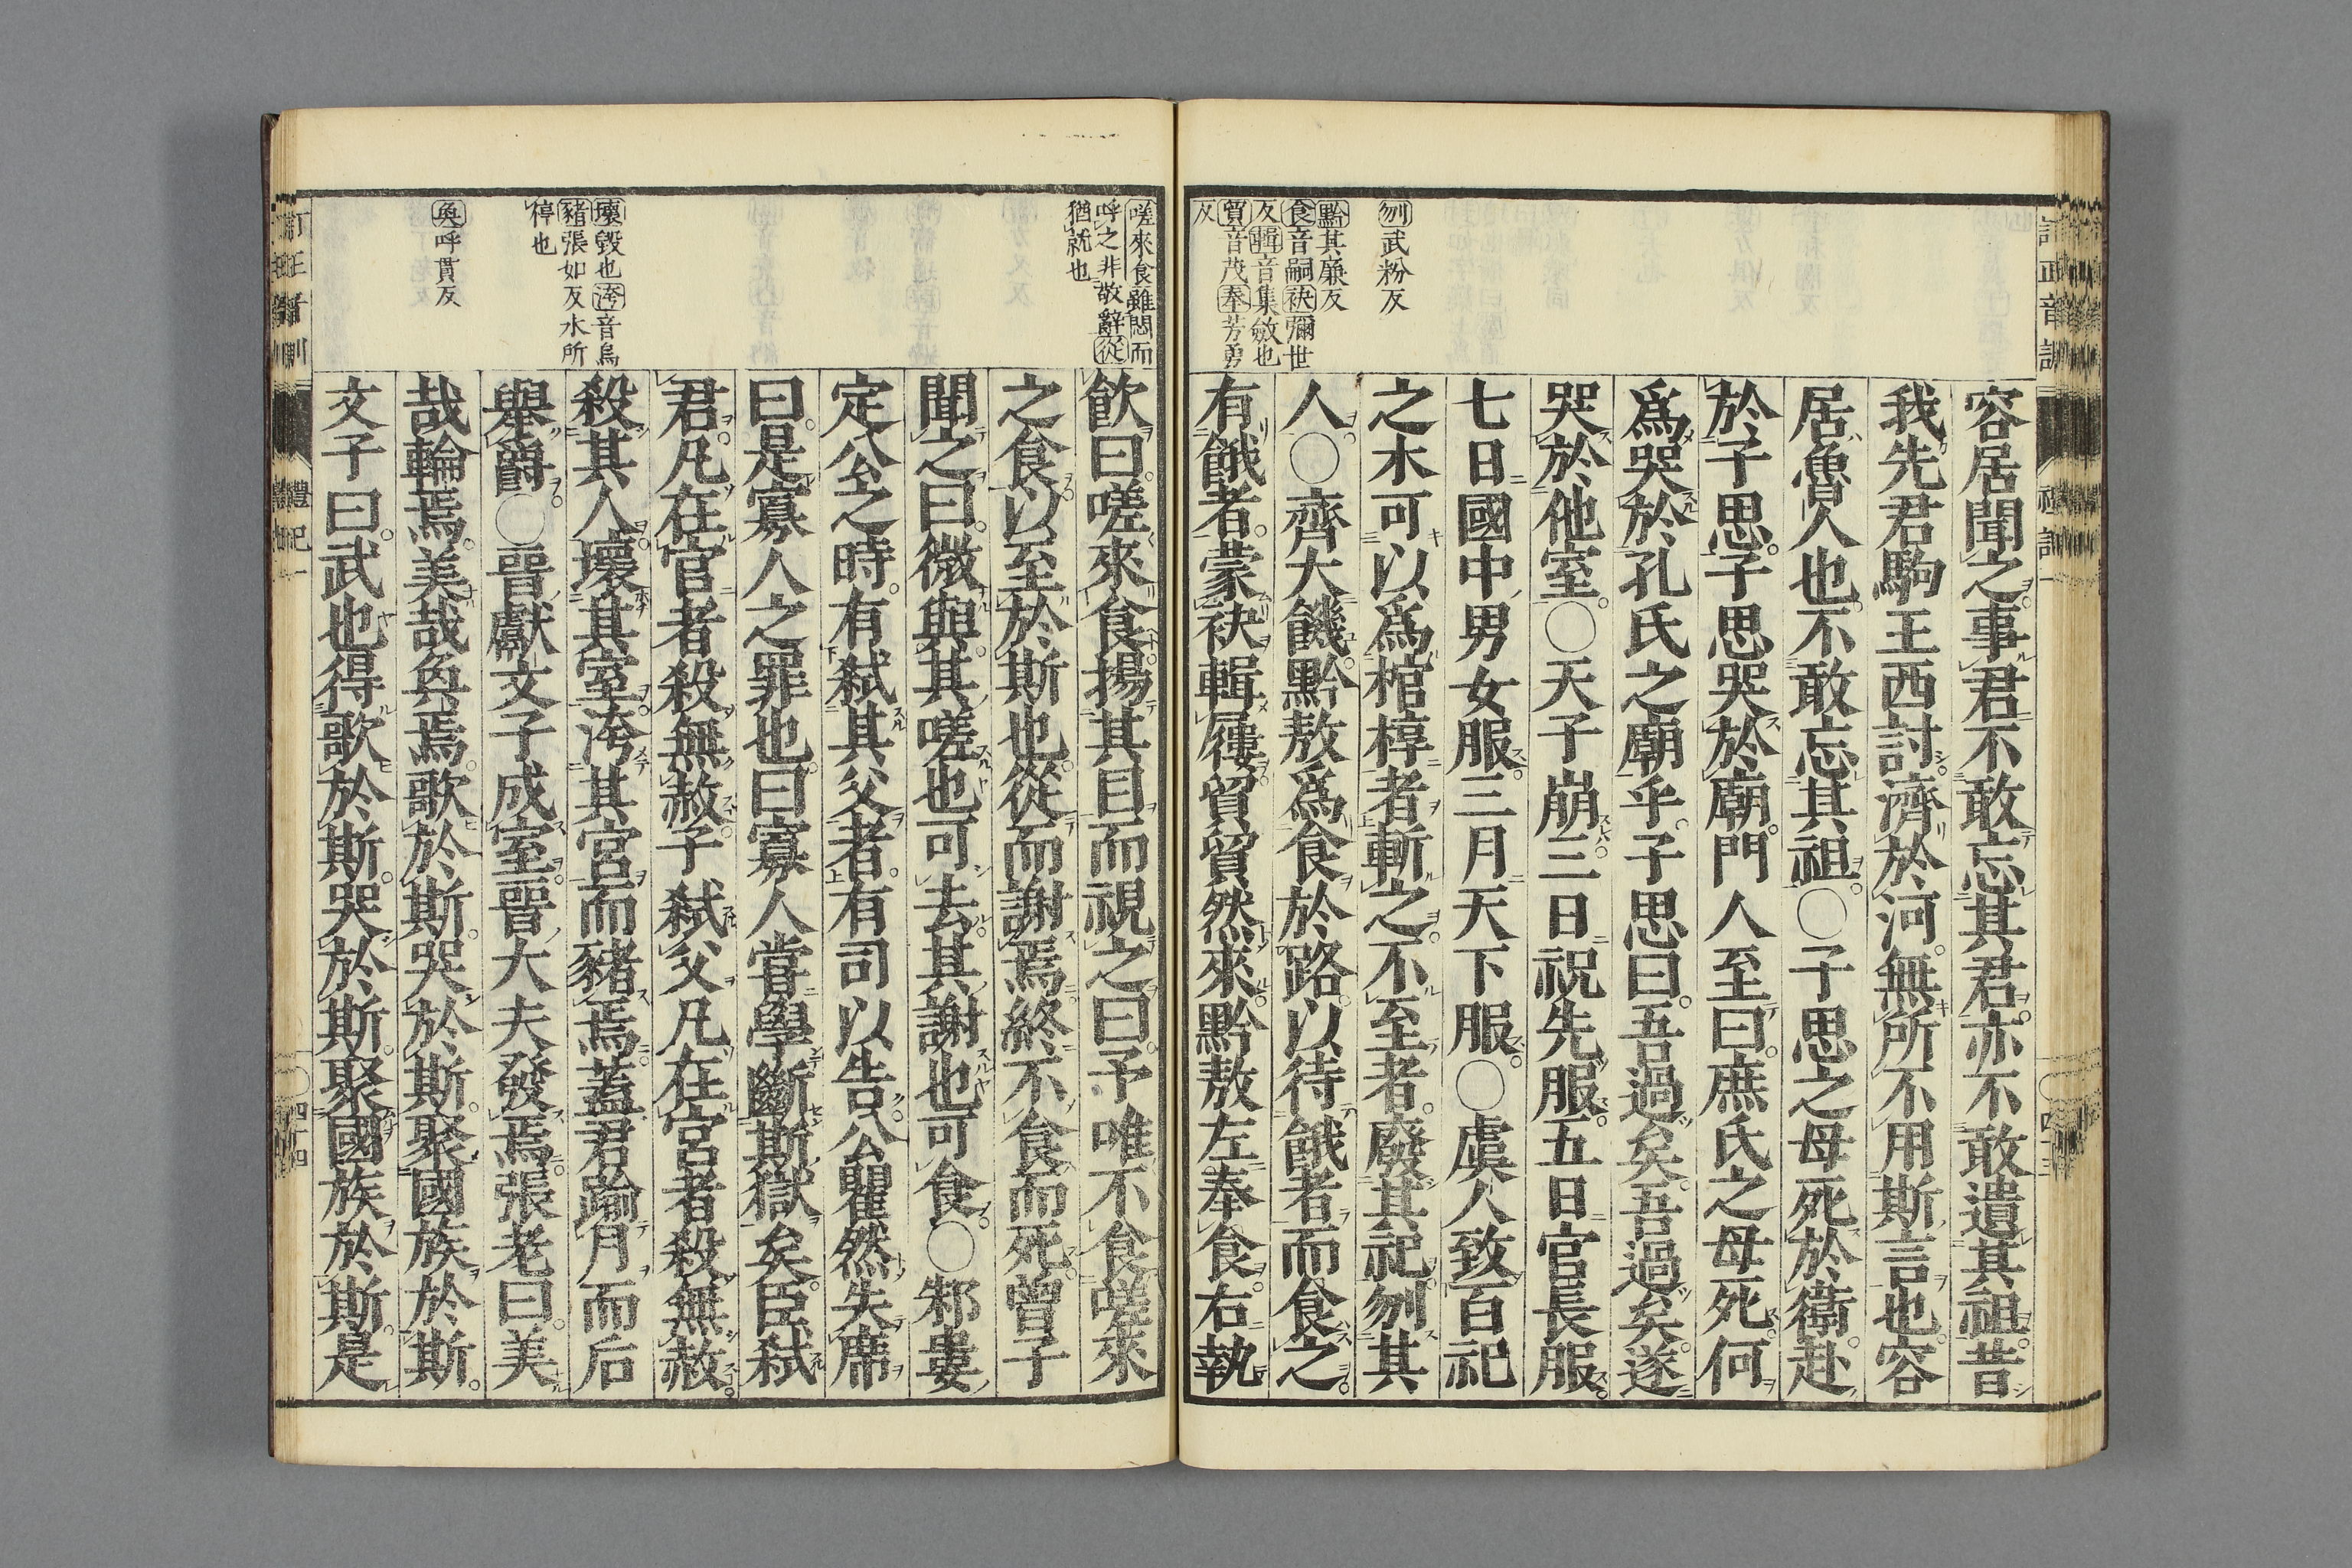 刎武粉反
黔其廉反
食音嗣袂彌世
反輯音集斂也
貿音茂奉芳勇
反
容居聞之事君不敢忘其君亦不敢遺其祖昔
我先君駒王西討濟於河無所不用斯言也容
居魯人也不敢忘其祖○子思之母死於衛赴
於子思子思哭於廟門人至曰庶氏之母死何
爲哭於孔氏之廟乎子思曰吾過矣吾過矣遂
哭於他室○天子崩三日祝先服五日官長服
七日國中男女服三月天下服○虞人致百祀
之木可以爲棺椁者斬之不至者廢其祀刎其
人○齊大饑黔敖爲食於路以待餓者而食之
有餓者蒙袂輯屨貿貿然來黔敖左奉食右執
嗟來食雖閔而
呼之非敬辭從
猶就也
壞毀也洿音烏
豬張如反水所
停也
奐呼貫反
飮曰嗟來食揚其目而視之曰予唯不食嗟來
之食以至於斯也從而謝焉終不食而死曾子
聞之曰微與其嗟也可去其謝也可食○邾婁
定公之時有弑其父者有司以告公瞿然失席
曰是寡人之罪也曰寡人嘗學斷斯獄矣臣弑
君凡在官者殺無赦子弑父凡在宮者殺無赦
殺其人壞其室洿其宮而豬焉蓋君踰月而后
舉爵○晉獻文子成室晉大夫發焉張老曰美
哉輪焉美哉奐焉歌於斯哭於斯聚國族於斯
文子曰武也得歌於斯哭於斯聚國族於斯是
禮記一
四十四